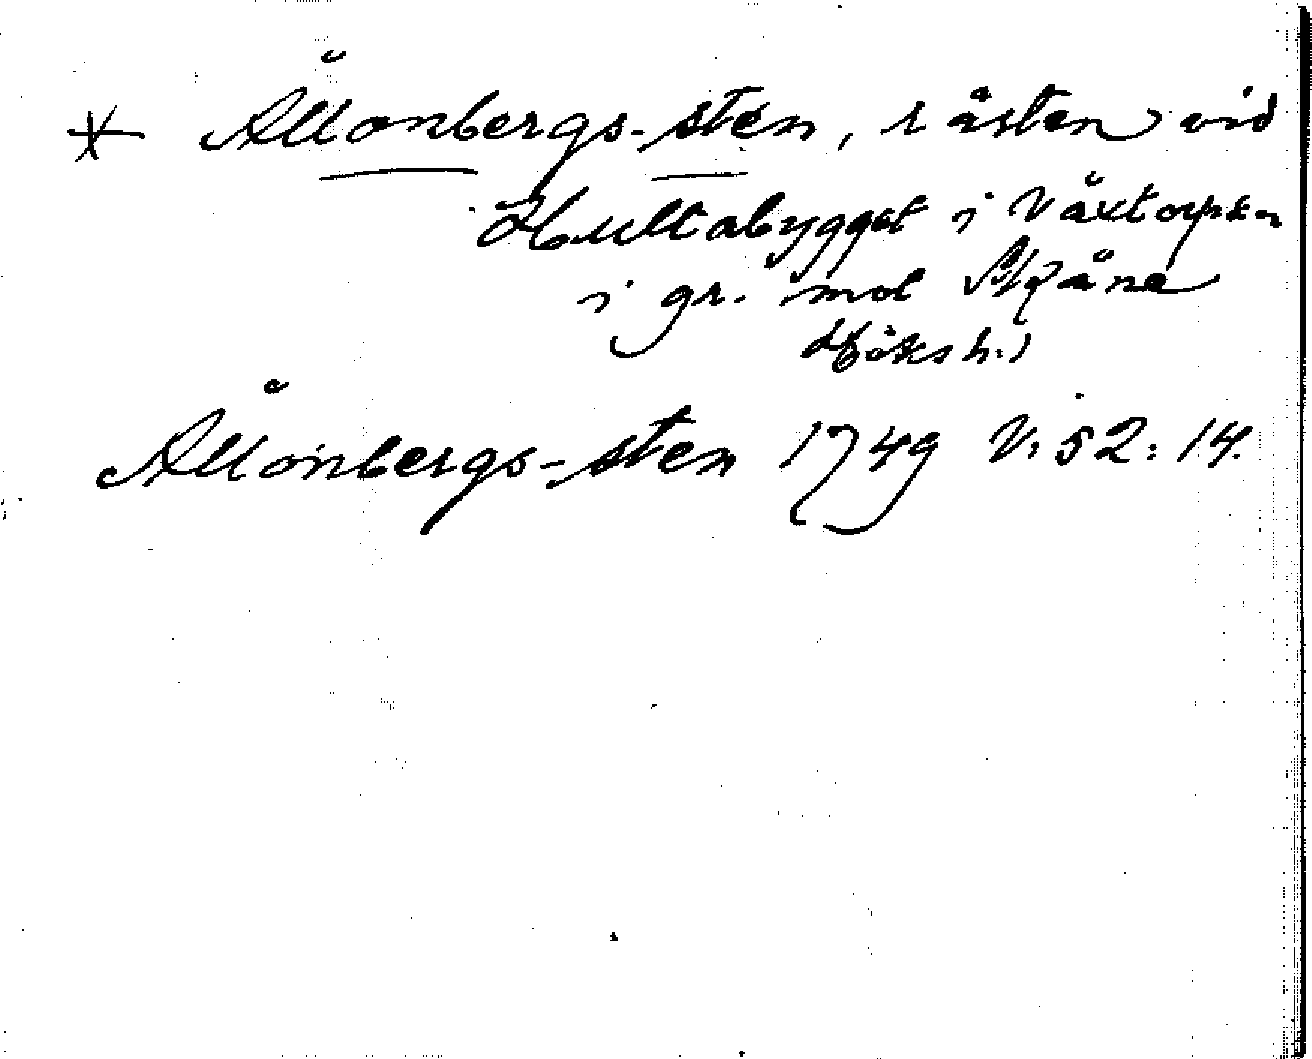 * Ållonbergs-sten, råsten vid
Hultabygget i Växtorps sn
i gr. mot Skåne
Höks h.)
Ållonbergs-sten 1749 V: 52: 14.